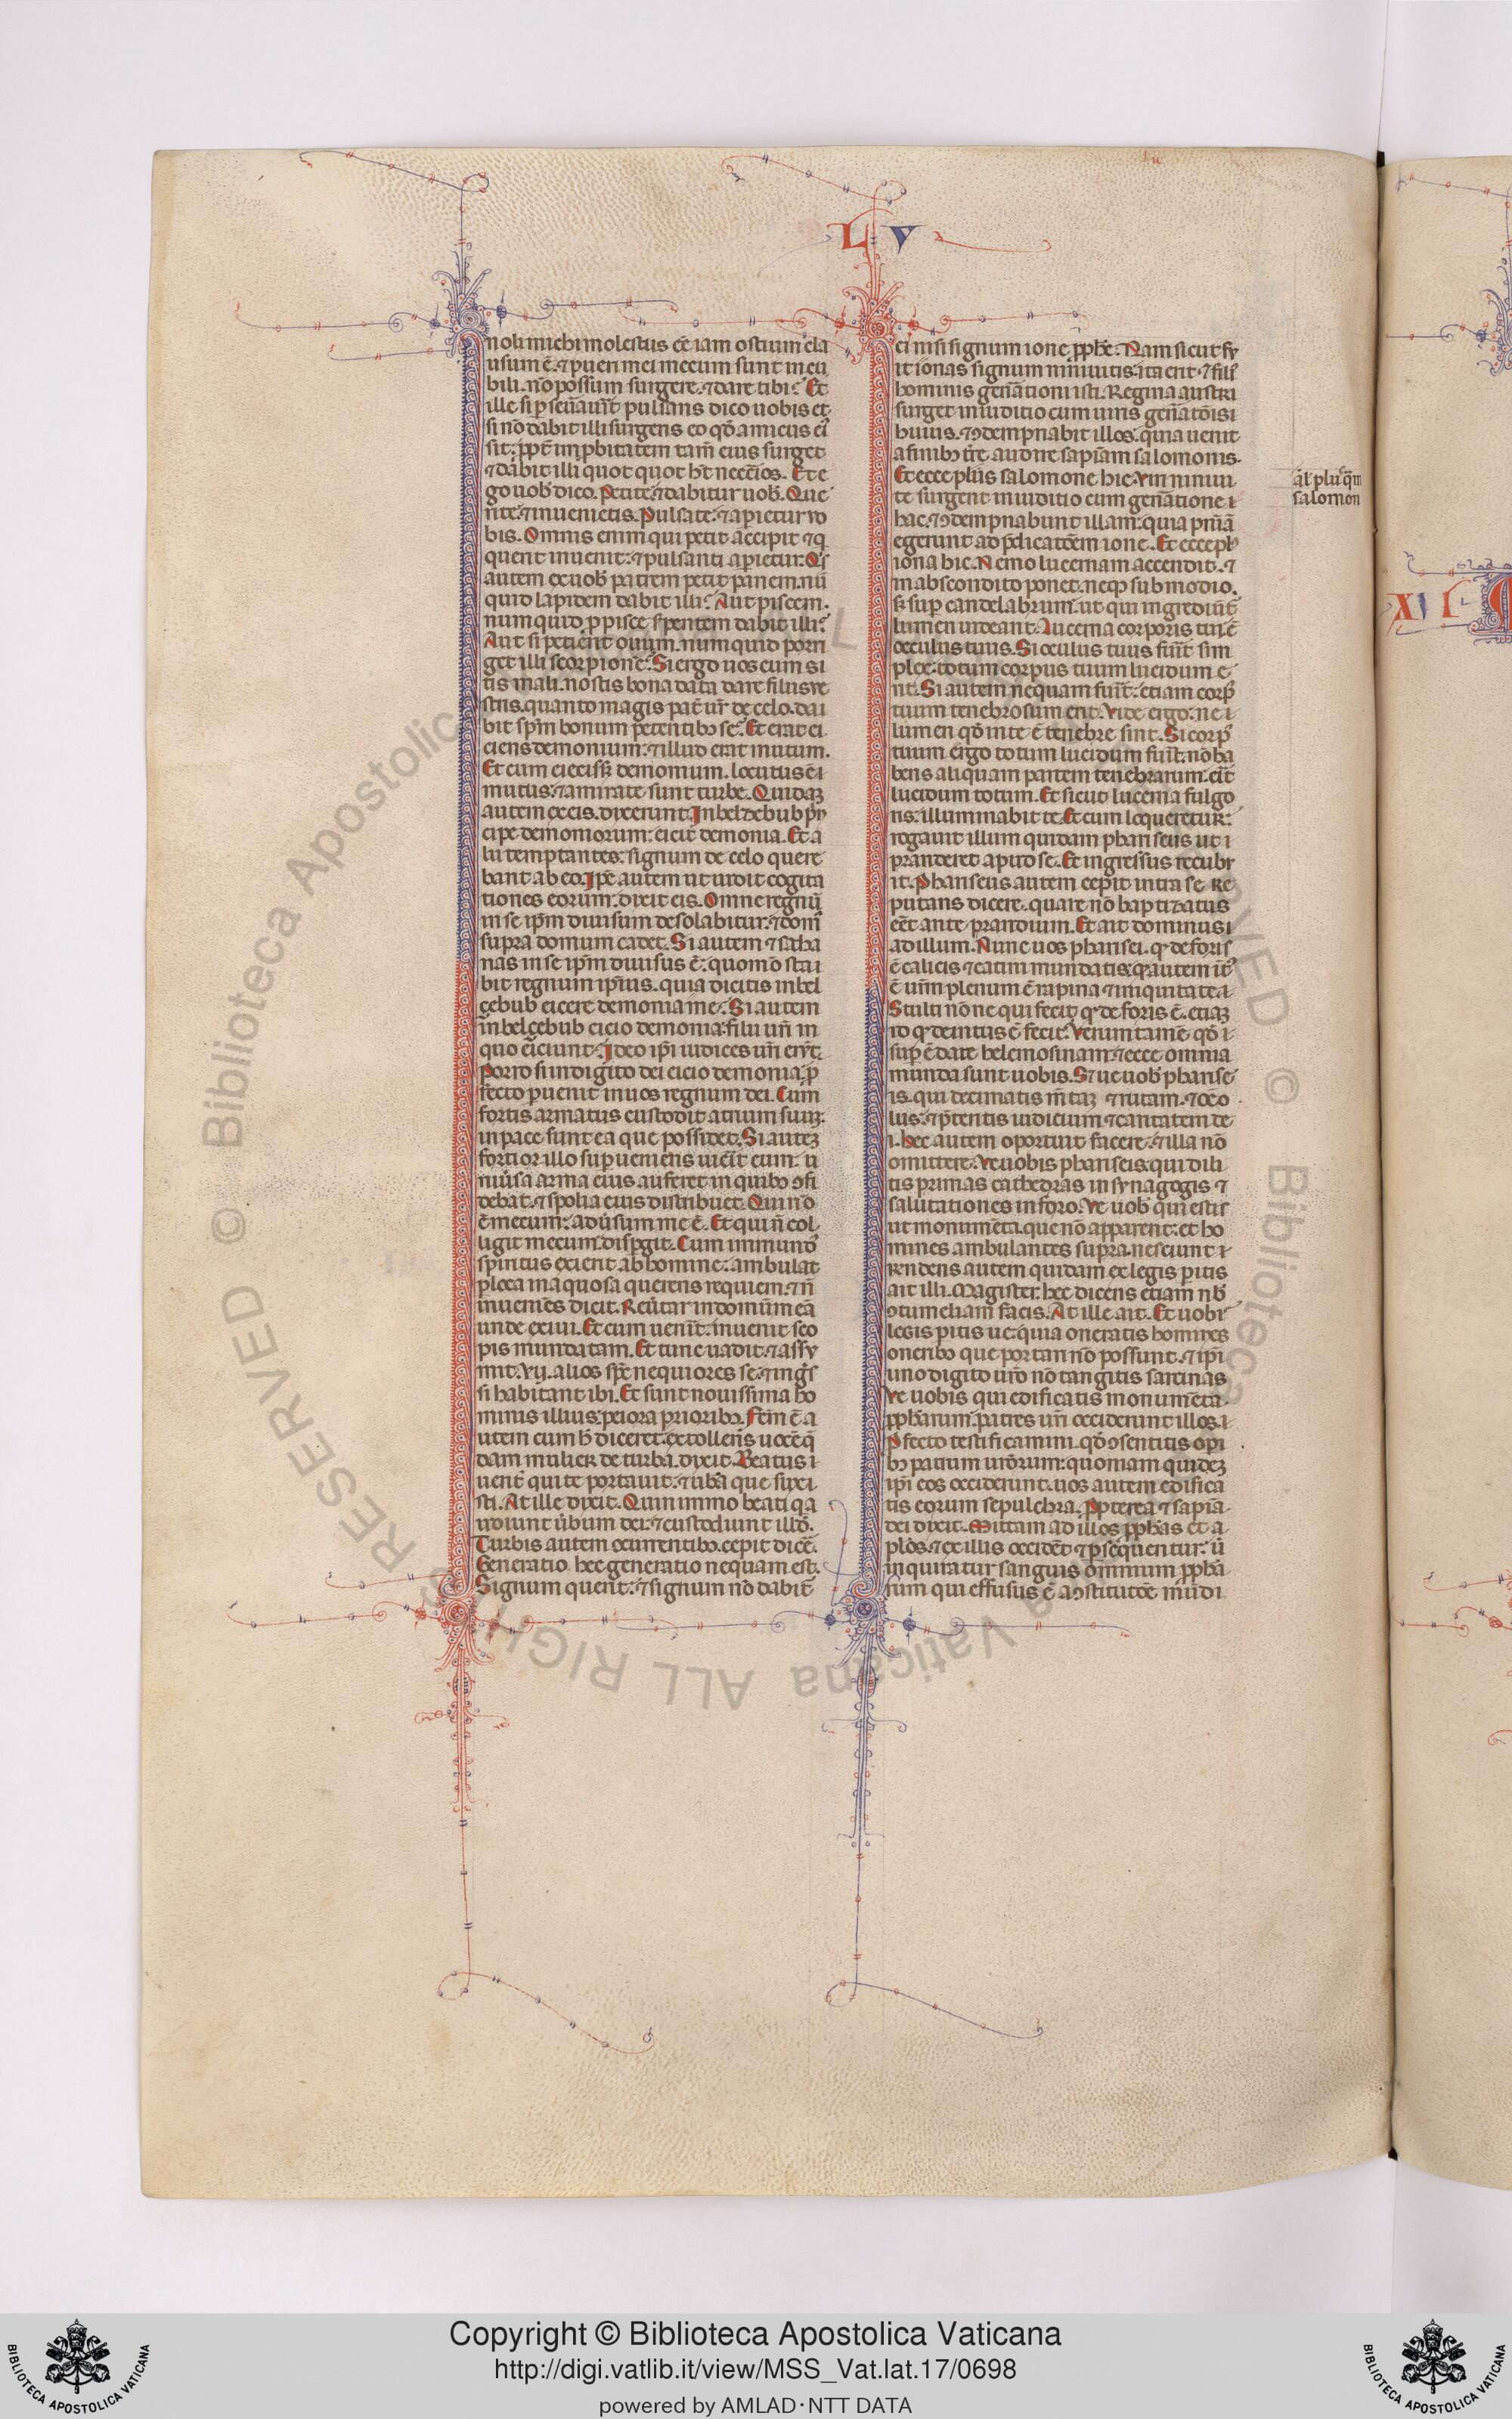 L V
noli michi molestus eē iam ostium cla
usum ē. ⁊ pueri mei mecum sunt in cu
bili. nō possum surgere. ⁊ dare tibi. Et
ille si pseūauit̄ pulsans dico uobis et
si nō dabit illi surgens eo qđ amicus ei᷒
sit: ꝓpt̄ inꝓbitatem tam̄ eius surget
⁊ dabit illi quot quot ht̄ necc̄ios. Et e
go uob̄ dico. Petite. ⁊ dabitur uob̄. Que
rite. ⁊ inuenietis. Pulsate. ⁊ aꝑietur uo
bis. Omnis enim qui petit accipit ⁊ q
querit inuenit: ⁊ pulsanti aꝑietur. Q's
autem ex uob̄ patrem petit panem. nū
quid lapidem dabit illi. Aut piscem.
numquid ꝓ pisce s̄pentem dabit illi.
Aut si petierit ouum. numquid porri
get illi scorpionē. Si ergo uos cum si
tis mali. nostis bona data dare filiis ue
stris. quanto magis pat̄ ur̄ de celo. da
bit sp̄m bonum petentibꝫ se. Et erat ei
ciens demonium: ⁊ illud erat mutum.
Et cum eiecisꝫ demonium. locutus ē
mutus: ⁊ amirate sunt turbe. Quidaꝫ
autem ex eis. dixerunt. In beldebub pn̄
cipe demoniorum: eicit demonia. Et a
lii temptantes: signum de celo quere
bant ab eo. Ipē autem ut uidit cogita
tiones eorum: dixit eis. Omne regnū
in se ip̄m diuisum desolabitur. ⁊ dom᷒
supra domum cadet. Si autem ⁊ satha
nas in se ip̄m diuisus ē: quomō sta
bit regnum ip̄ius. quia dicitis in bel
çebub eicere demonia me. Si autem
in belçebub eicio demonia: filii ur̄i in
quo eiciunt. Ideo ip̄i iudices ur̄i erūt.
Porro si in digito dei eicio demonia. ꝓ
fecto ꝑuenit in uos regnum dei. Cum
fortis armatus custodit atrium suuꝫ.
in pace sunt ea que possidet. Si auteꝫ
fortior illo suꝑueniens uicerit eum. u
niūsa arma eius auferet in quibꝫ ꝯfi
debat. ⁊ spolia eius distribuet. Qui nō
ē mecum: adūsum me ē. Et qui n̄ col
ligit mecum. disꝑgit. Cum immund᷒
spiritus exierit ab homine: ambulat
ꝑ loca inaquosa querens requiem. ⁊ n̄
inueniēs dicit. Reūtar in domum meā
unde exiui. Et cum uenit̄: inuenit sco
pis mundatam. Et tunc uadit. ⁊ assu
mit. VII. alios sp̄c nequiores se. ⁊ ingr̄s
si habitant ibi. Et sunt nouissima ho
minis illius. peiora prioribꝫ. Fctm̄ ē a
utem cum h̄ diceret. extollens uocē q̄
dam mulier de turba. dixit. Beatus
uent̄ qui te portauit. ⁊ ub̄a que suxi
sti. At ille dixit. Quin immo beati q a
udiunt ūbum dei. ⁊ custodiunt illđ.
Turbis autem ꝯcurrentibꝫ. cepit dice.
Generatio hec generatio nequam est.
Signum querit: ⁊ signum nō dabit̄
ei nisi signum ione ꝓph̄e. Nam sicut fu
it ionas signum niniuitis. ita erit ⁊ fili᷒
hominis gen̄ationi isti. Regina austri
surget in iuditio cum uiris gen̄atōis
huius. ⁊ ꝯdempnabit illos. quia uenit
a finibꝫ tr̄e audire sapīam salomonis.
Et ecce plus salomone hic. Viri niniui
te surgent in iuditio cum gen̄atione
hac. ⁊ ꝯdempnabunt illam: quia pn̄iā
egerunt ad p̄dicatōem ione. Et ecce pl᷒
iona hic. Nemo lucernam accendit. ⁊
in abscondito ponet. neqꝫ sub modio.
sꝫ sup̄ candelabrum. ut qui ingrediūt̄
lumen uideant. Lucerna corporis tui ē
occulus tuus. Si oculus tuus fuit̄ sim
plex: totum corpus tuum lucidum e
rit. Si autem nequam fuit̄: etiam corp᷒
tuum tenebrosum erit. Vide ergo: ne
lumen qđ in te ē tenebre sint. Si corp᷒
tuum ergo totum lucidum fuit̄: nō ha
bens aliquam partem tenebrarum. erit
lucidum totum. Et sicut lucerna fulgo
ris: illuminabit te. Et cum loqueretur:
rogauit illum quidam phariseus ut
pranderet apud se. Et ingressus recubu
it. Phariseus autem cepit intra se re
putans dicere. quare nō baptizatus
eēt ante prandium. Et ait dominus
ad illum. Nunc uos pharisei. qđ de foris
ē calicis ⁊ catini mundatis: qđ autem īt᷒
ē ur̄m plenum ē rapina ⁊ iniquitate.
Stulti nōne qui fecit qđ de foris ē. etiaꝫ
id qđ deintus ē fecit. Verumtamē qđ
sup̄ ē date helemosinam: ⁊ ecce omnia
munda sunt uobis. S; ue uob̄ pharise
is. qui decimatis mētaꝫ ⁊ rutam. ⁊ oē o
lus: ⁊ p̄teritis iudicium ⁊ caritatem de
i. Hec autem oportuit facere. ⁊ illa nō
omittere. Ve uobis phariseis. qui dili
tis primas cathedras in synagogis ⁊
salutationes in foro. Ve uob̄ qui estis
ut monumēta. que nō apparent. et ho
mines ambulantes supra. nesciunt.
Rendens autem quidam ex legis ꝑitis
ait illi. Magister. hec dicens etiam nob̄
ꝯtumeliam facis. At ille ait. Et uobis
legis ꝑitis ue: quia oneratis homines
oneribꝫ que portari nō possunt. ⁊ ip̄i
uno digito ur̄o nō tangitis sarcinas.
Ve uobis qui edificatis monumēta.
ꝓph̄arum. patres ur̄i occiderunt illos.
Profecto testificamini. qđ ꝯsentitis oꝑi
bꝫ patrum ur̄orum: quoniam quideꝫ
ip̄i eos occiderunt. uos autem edifica
tis eorum sepulchra. Propterea ⁊ sapīa
dei dixit. Mittam ad illos ꝓph̄as et a
pl̄os. ⁊ ex illis occidēt ⁊ ꝑsequentur: ū
inquiratur sanguis omnium ꝓph̄a
rum qui effusus ē a ꝯstitutōe mūdi
al᷒ plus q̄m
salomon
XI
Copyright © Biblioteca Apostolica Vaticana
http://digi.vatlib.it/view/MSS_Vat.lat.17/0698
powered by AMLAD·NTT DATA
BIBLIOTECA APOSTOLICA VATICANA
BIBLIOTECA APOSTOLICA VATICANA
© Biblioteca Apostolica Vaticana ALL RIGHTS RESERVED